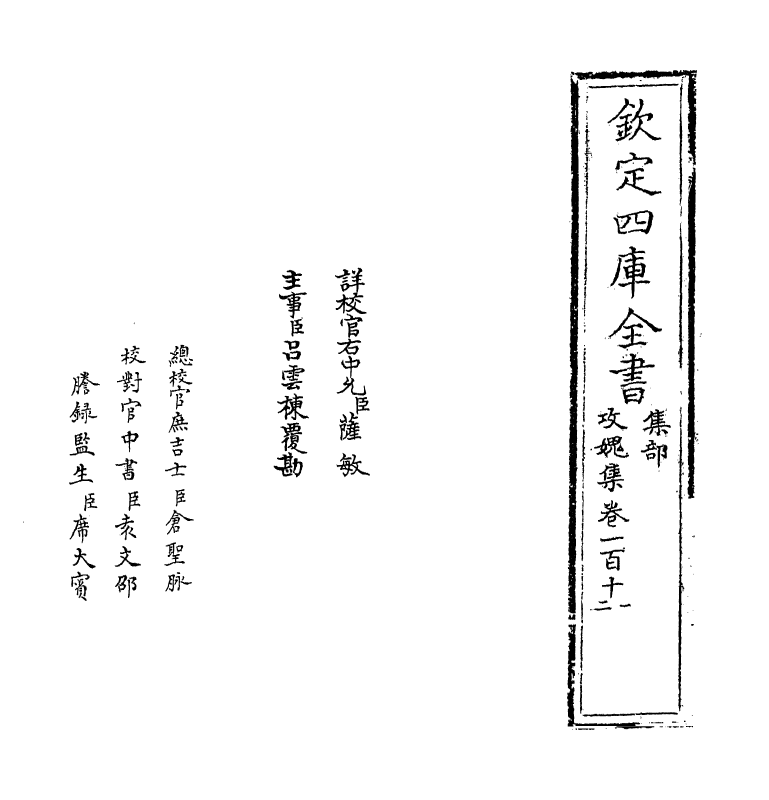 欽定四庫全書
集部
攻媿集卷一百十一二
詳校官右中允臣薩敏
主事臣呂雲棟覆勘
總校官庶吉士臣倉聖脉
校對官中書臣袁文邵
謄錄監生臣席大賓